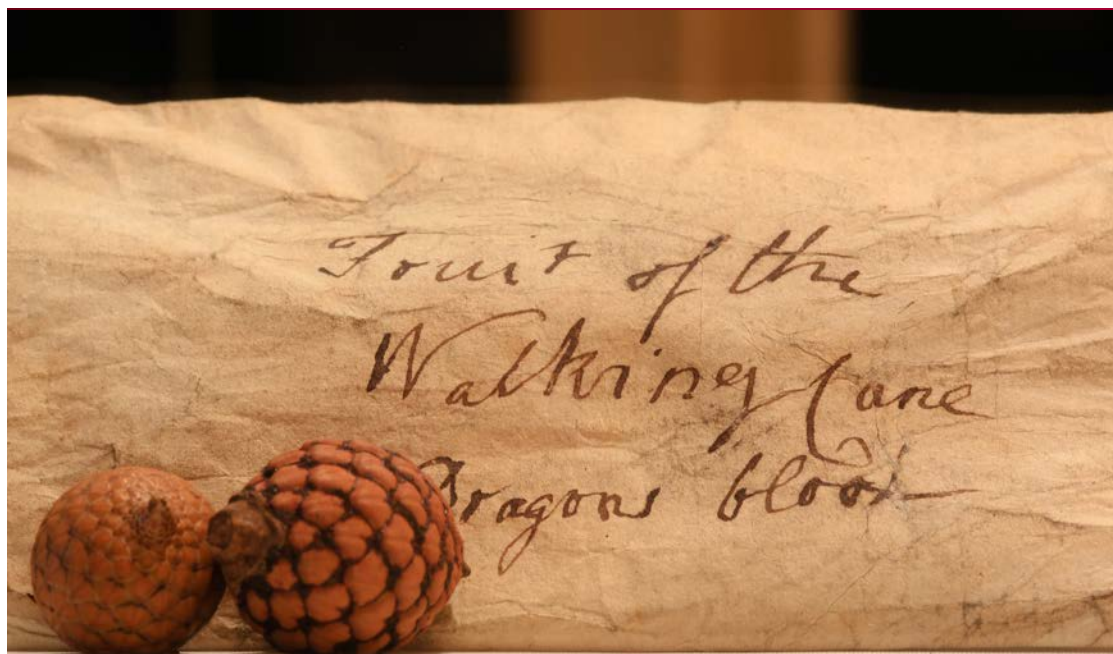 Fruit of the
Walking Cane
Dragons blood